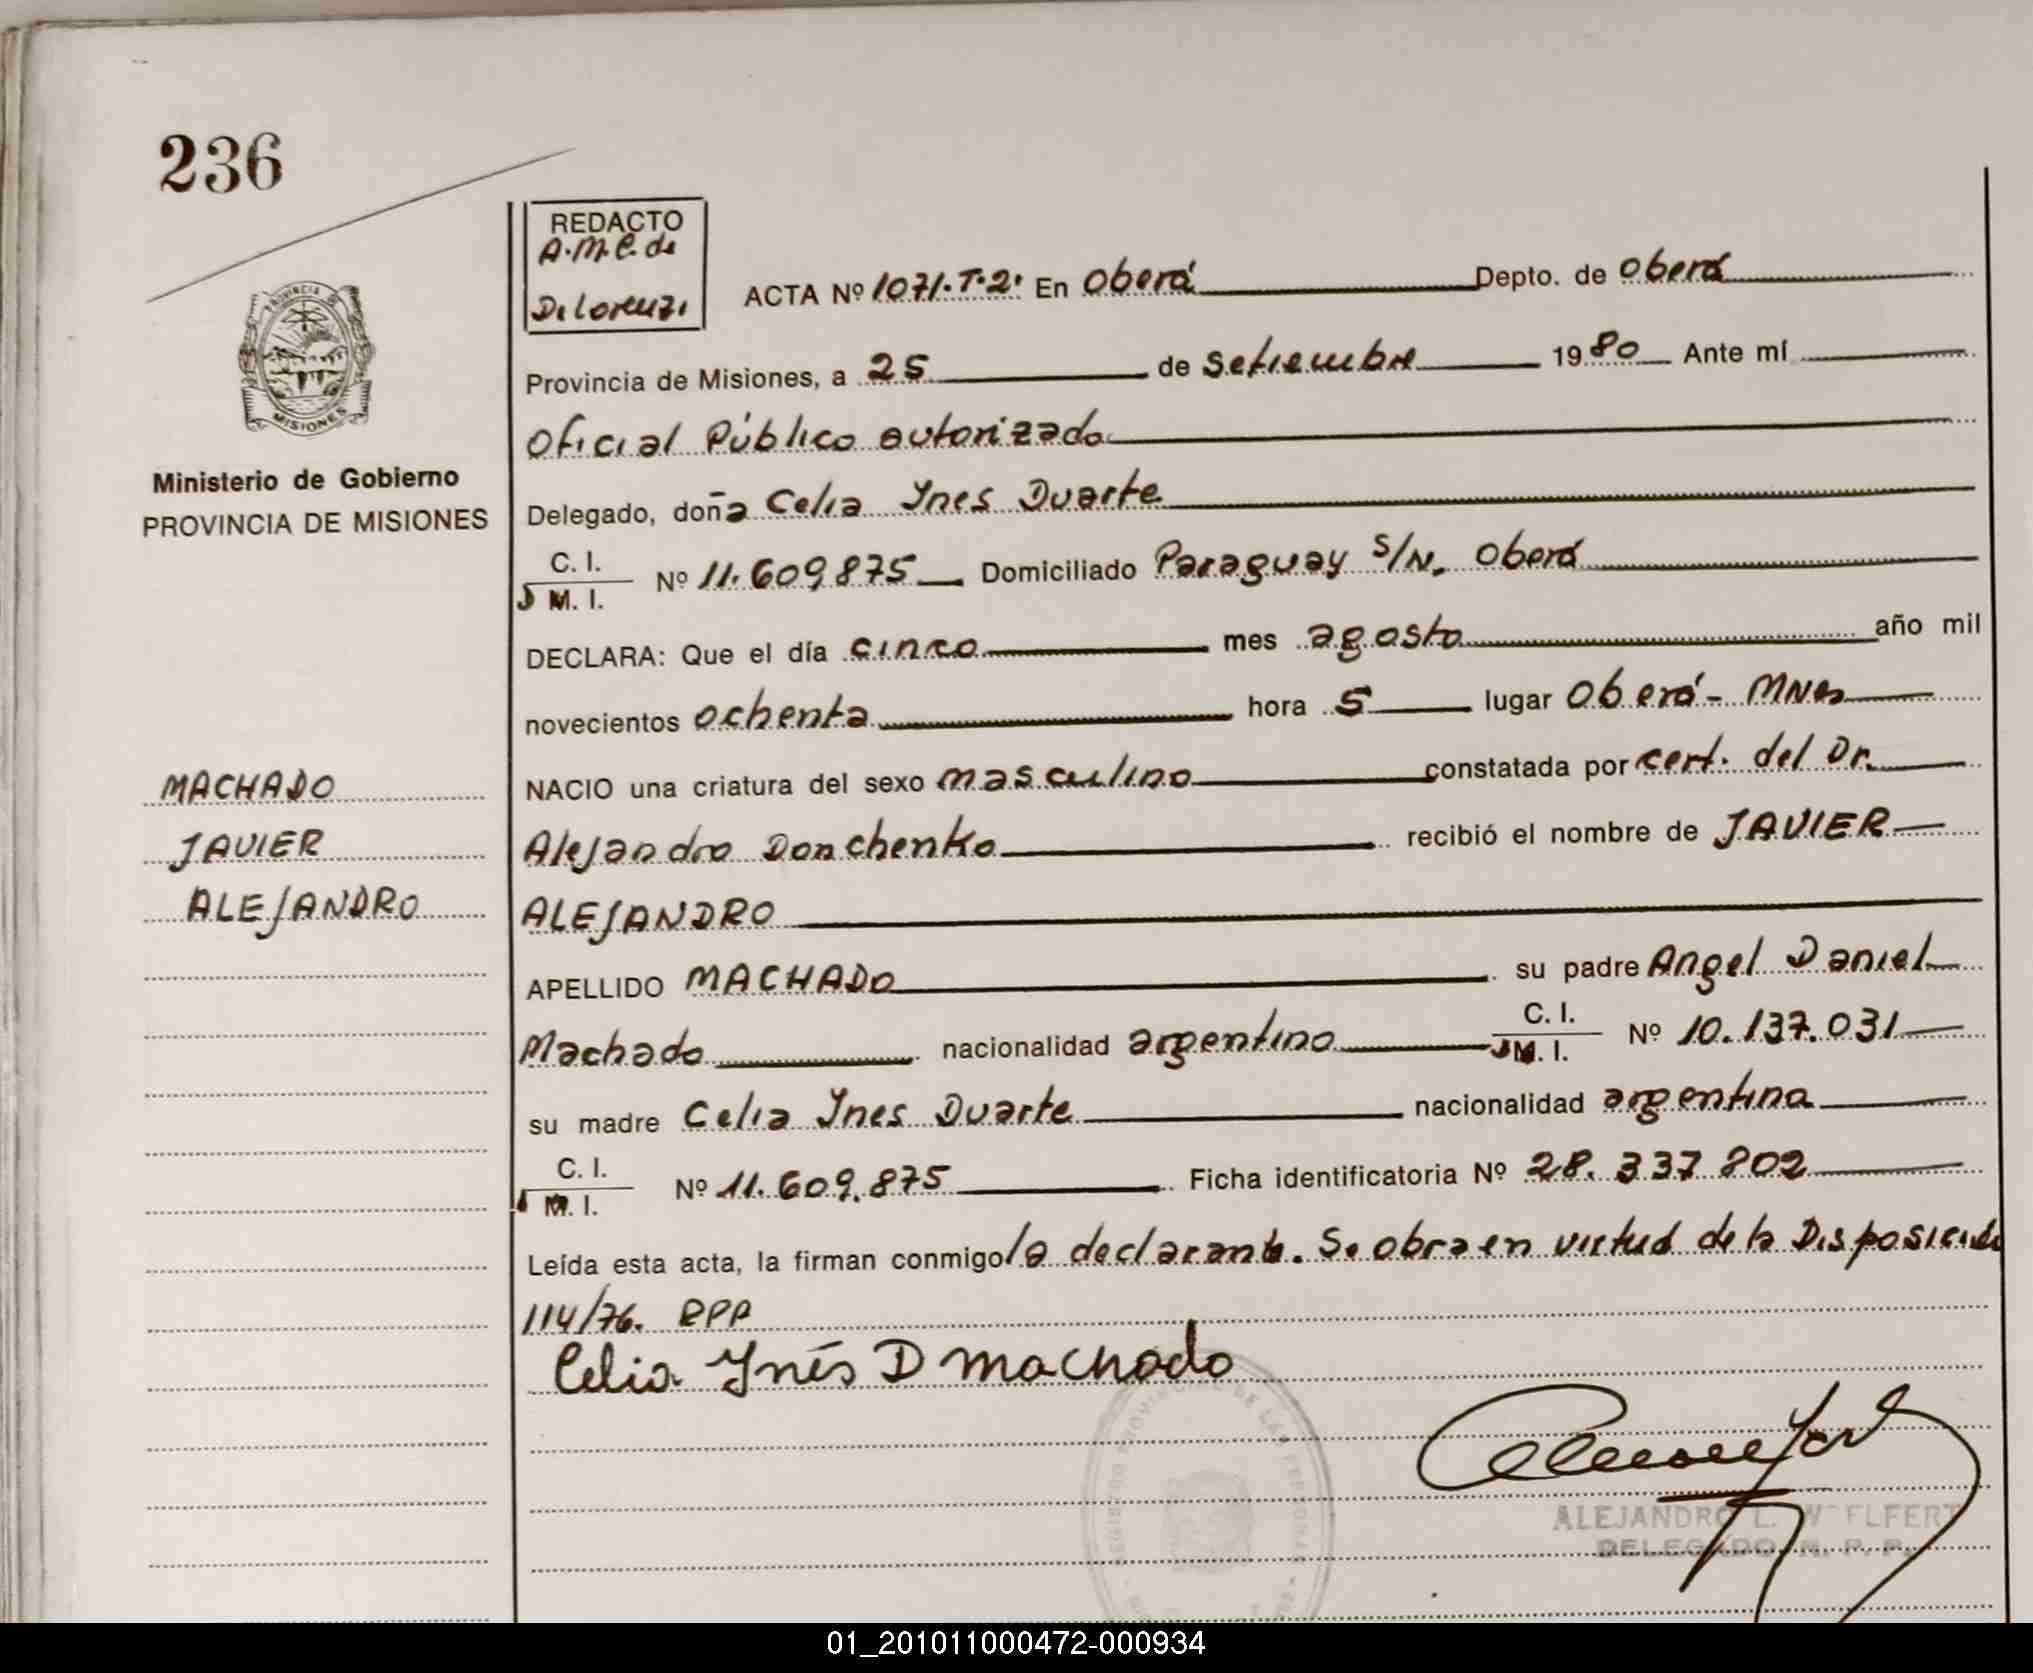 236
REDACTO
A.M.C. de
DeLorenzi
ACTA Nº 1071.T.2. En Oberá Depto. de Oberá
Provincia de Misiones, a 25 de Setiembre 1980 Ante mí
Oficial Público autorizado
Delegado, doña Celia Ynes Duarte
C. I.
M. I. Nº 11.609,875 Domiciliado Paraguay S/N. Oberá
DECLARA: Que el día cinco mes agosto año mil
novecientos ochenta hora 5 lugar Oberá - MNes
NACIO una criatura del sexo masculino constatada por cert. del Dr.
Alejandro Donchenko recibió el nombre de JAVIER
ALEJANDRO
APELLIDO MACHADO su padre Angel Daniel
Machado nacionalidad argentino C. I. M. I. Nº 10.137.031
su madre Celia Ynes Duarte nacionalidad argentina
C. I.
M. I. Nº 11.609.875 Ficha identificatoria Nº 28.337802
Leída esta acta, la firman conmigo la declarante. Se obra en virtud de la Disposición
114/76. RPP
Celia Ynés D Machado
PROVINCIA DE
MISIONES
Ministerio de Gobierno
PROVINCIA DE MISIONES
MACHADO
JAVIER
ALEJANDRO
REGISTRO PROVINCIAL DE LAS PERSONAS
ALEJANDRO L.
DELEGADO R. P. P.
01_201011000472-000934